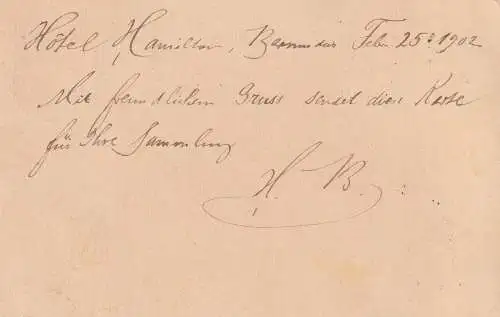 Hôtel Hamilton, Bermudas Febr 25. 1902
Mit freundlichem Gruss sendet diese Karte
für Ihre Sammlung
H. B.